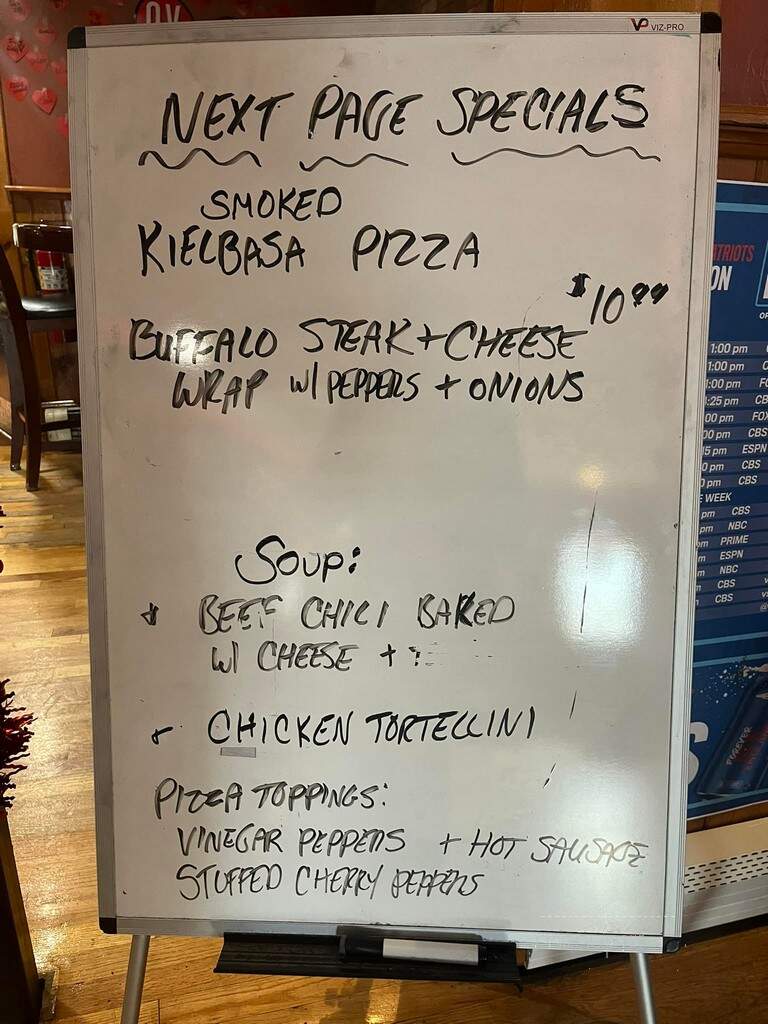 VP VIZ-PRO
NEXT PAGE SPECIALS
SMOKED
KIELBASA PIZZA
$10.99
BUFFALO STEAK + CHEESE
WRAP W/ PEPPERS + ONIONS
SOUP:
BEEF CHILI BAKED
W/ CHEESE +
CHICKEN TORTELLINI
PIZZA TOPPINGS:
VINEGAR PEPPERS + HOT SAUSAGE
STUFFED CHERRY PEPPERS
ON
1:00 pm
1:00 pm
1:00 pm
:25 pm CB
:00 pm FOX
00 pm CBS
15 pm ESPN
0 pm CBS
0 pm CBS
WEEK
pm CBS
pm NBC
m PRIME
m ESPN
m NBC
CBS
CBS
FOREVER